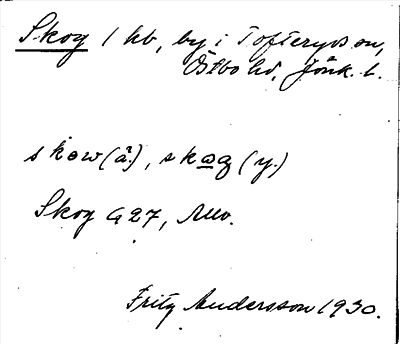 Skog 1 hb, by i Tofteryds sn,
Östbo hd, Jönk. l.
skow (ä.), skog (y.)
Skog G 27, Muo.
Fritz Andersson 1930.